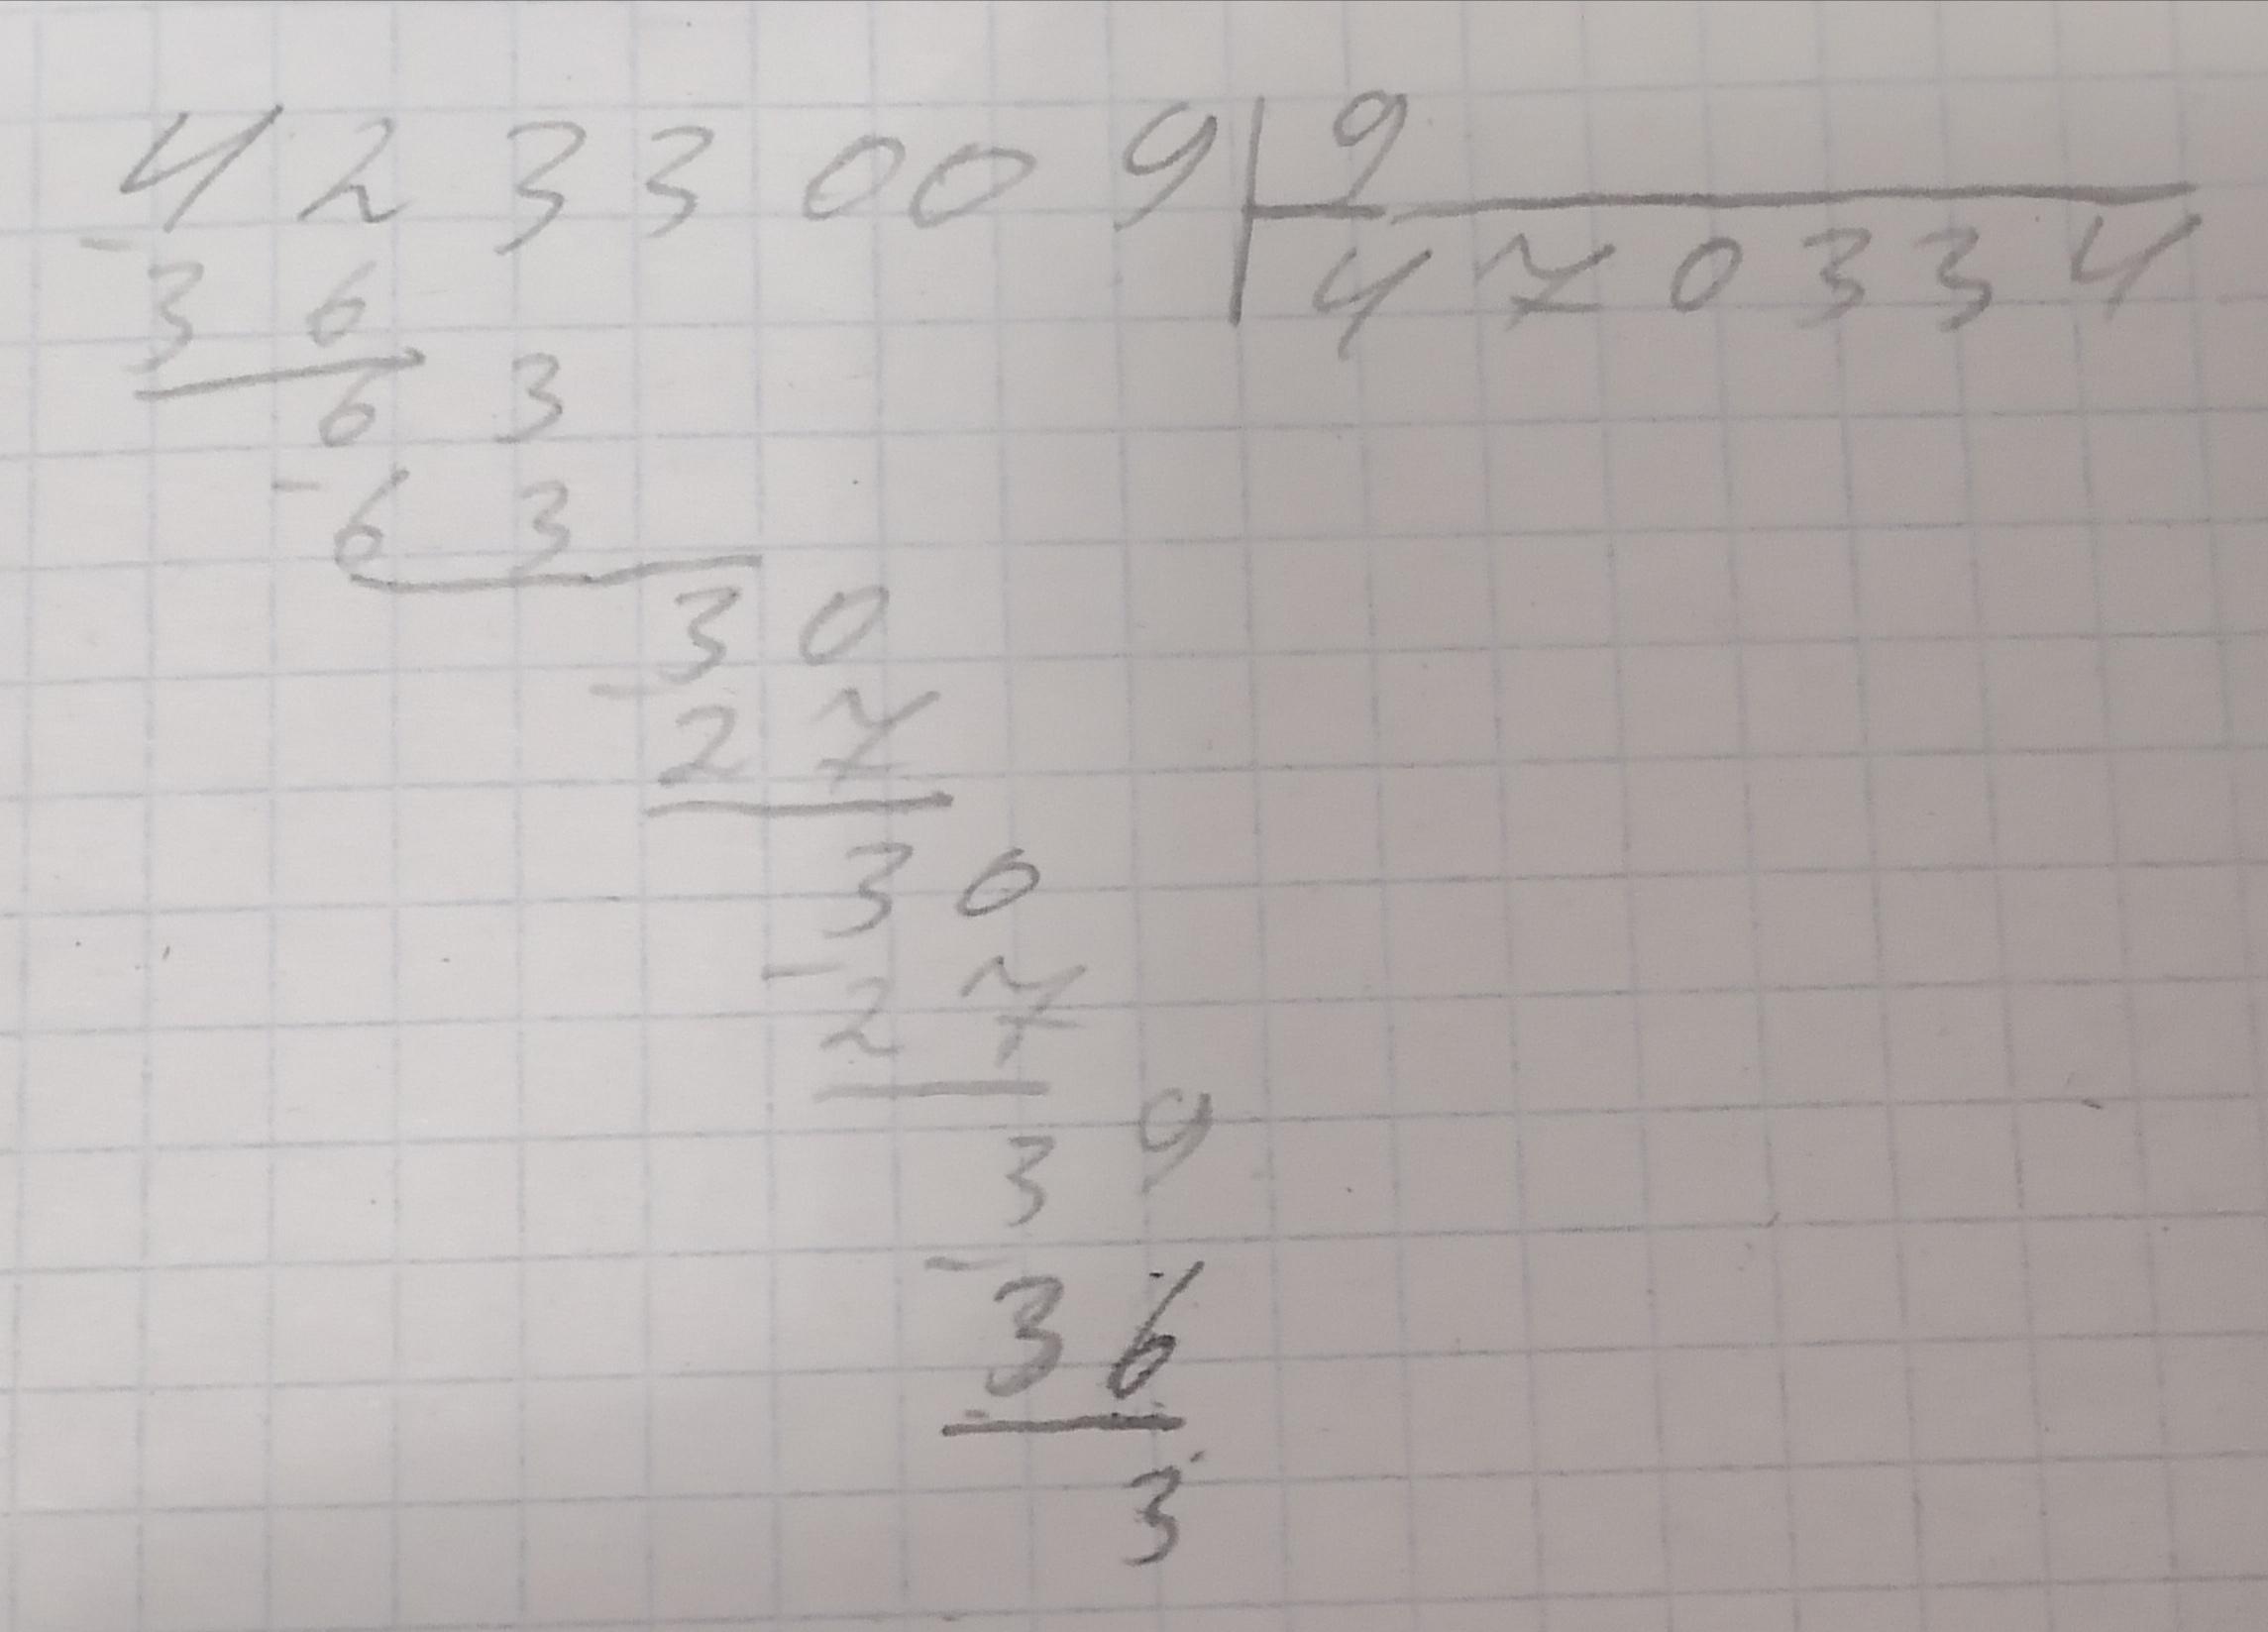 4233009 9
470334
- 36
63
- 63
30
- 27
30
- 27
39
- 36
3